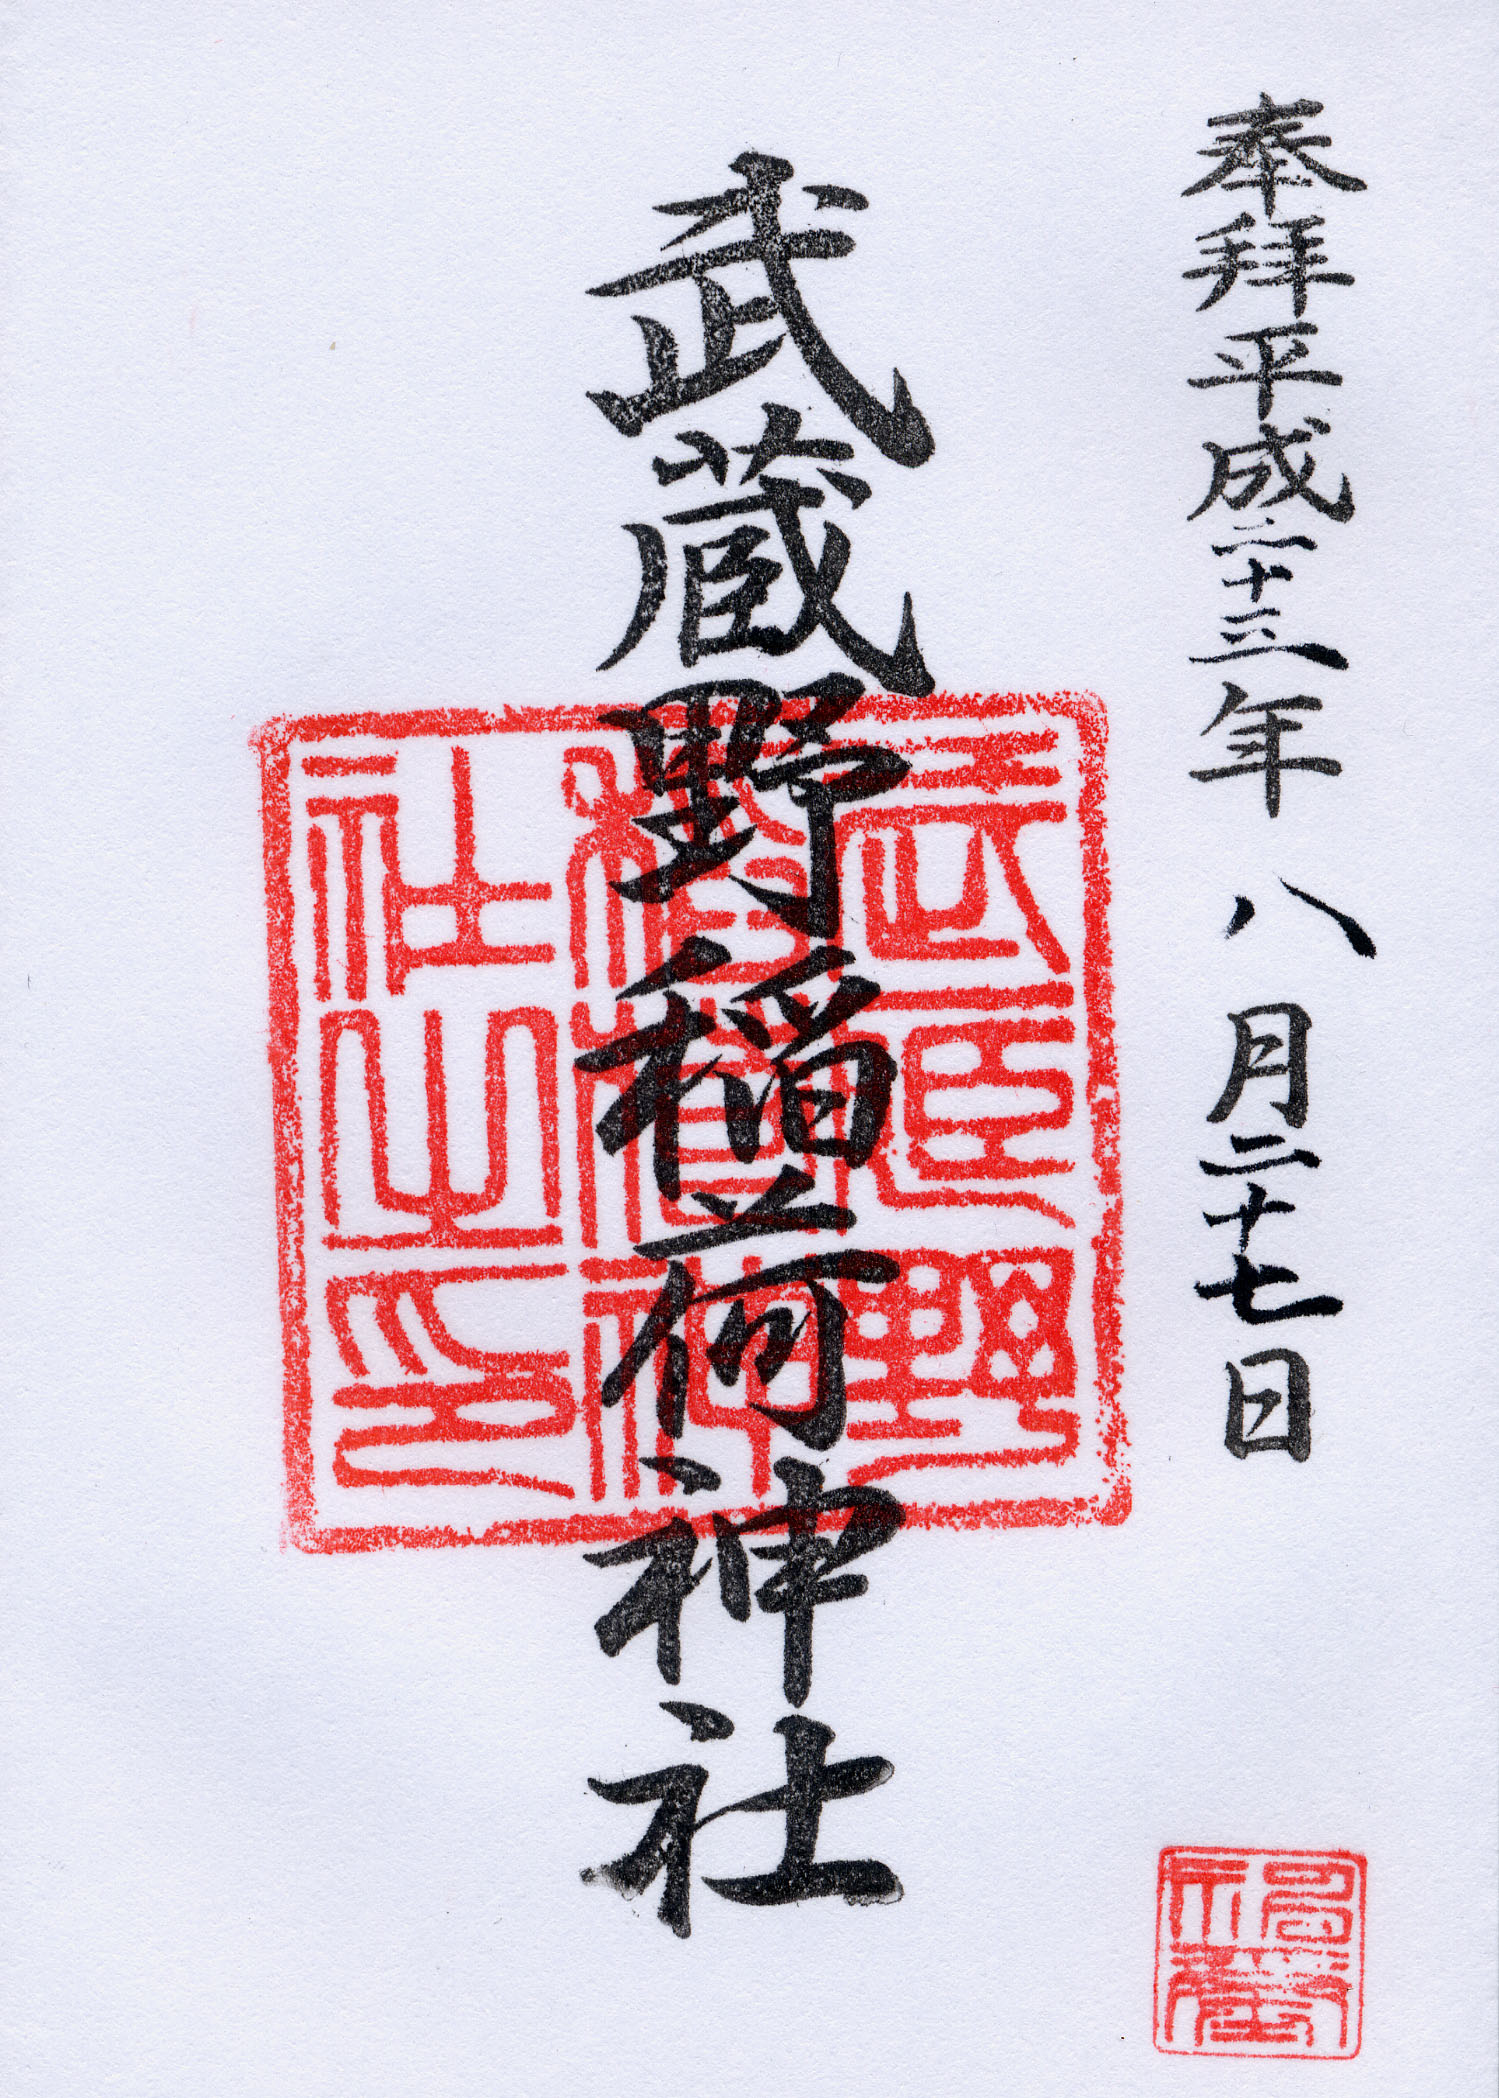 奉拝平成二十三年 八月二十七日
武蔵野稲荷神社
武蔵野
稲荷神
社之印